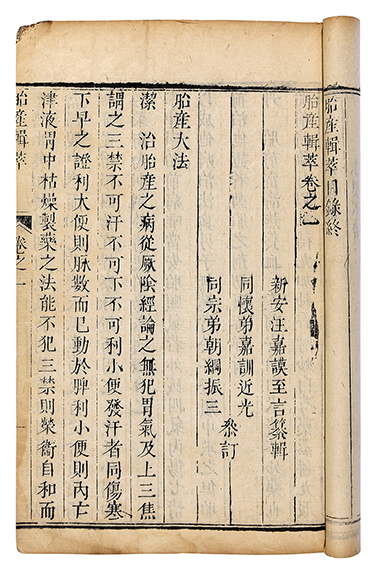 胎產輯萃目錄終
胎產輯萃卷之一
新安汪嘉謨至言纂輯
同懷弟嘉訓近光
同宗弟朝綱振三
叅訂
胎產大法
潔 治胎產之病從厥陰經論之無犯胃氣及上三焦
謂之三禁不可汗不可下不可利小便發汗者同傷寒
下早之證利大便則脉數而已動於脾利小便則內亡
津液胃中枯燥製藥之法能不犯三禁則榮衞自和而
胎產輯萃 卷之一 一